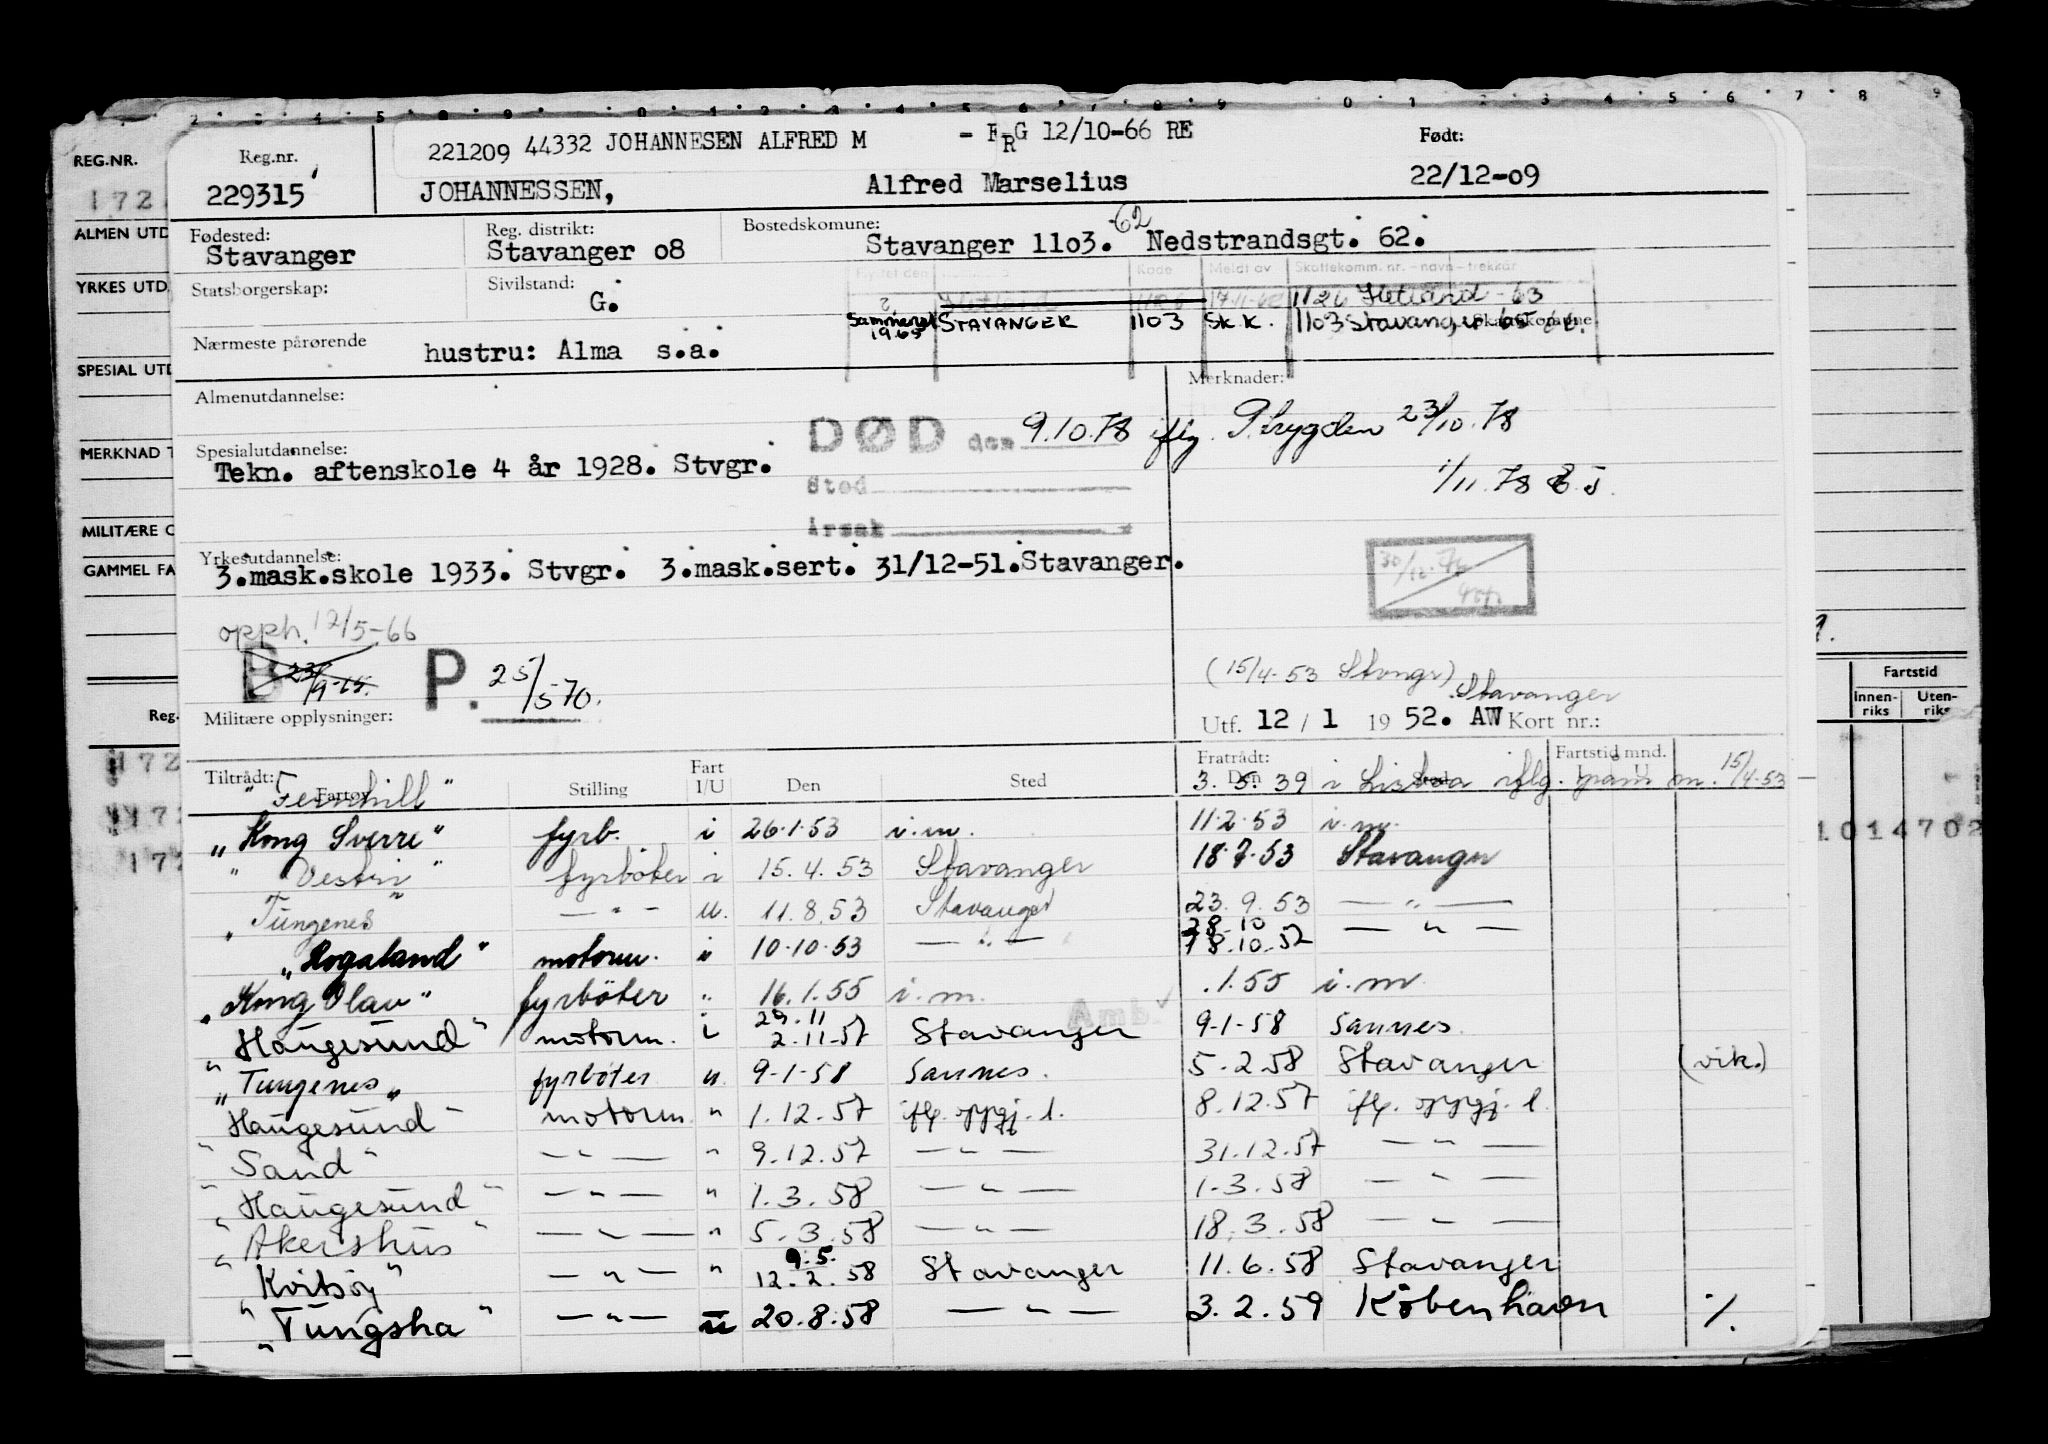 REG.NR.
172
ALMEN UTD
YRKES UTD.
SPECIAL UTD
MERKNAD T
MILITÆRE O
GAMMEL FA
Reg.
172
172
172
221209 44332 JOHANNESEN ALFRED M - FRG 12/10-66 RE
Reg.nr. Født:
229315 JOHANNESSEN, Alfred Marselius 22/12-09
Fødested: Reg. distrikt: Bostedskomune: 62
Stavanger Stavanger 08 Stavanger 1103. Nedstrandsgt. 62.
Flyttet den Kode Meldt av Skattekomm. nr. - navn - trekkår
Statsborgerskap: Sivilstand:
G. ? Hetland 1126 Hetland - 63
Sommeren 1965 STAVANGER 1103 Sk.K. 1103 Stavanger 65 66.
Nærmeste pårørende hustru: Alma s.a.
Almenutdannelse: Merknader:
DØD den 9.10.78 iflg. P.trygden 23/10.78
Spesialutdannelse:
Tekn. aftenskole 4 år 1928. Stvgr.
Sted 1/11.78 E.J.
Årsak
Yrkesutdannelse:
3.mask.skole 1933. Stvgr. 3.mask.sert. 31/12-51.Stavanger.
opph. 12/5-66
B 23/9-65. P. 25/5 70.
(15/4-53 Stvngr) Stavanger
Militære opplysninger: Utf. 12 / 1 19 52. AW Kort nr.:
Tiltrådt: Fart Fratrådt: Fartstid mnd.
Fartøy Stilling I/U Den Sted Den Sted I U
"Fernhill" 3.5.39 i Lisboa iflg. m. 15/4-53
"Kong Sverre" fyrb. i 26.1.53 i.m. 11.2.53 i.m.
"Vestri" fyrböter i 15.4.53 Stavanger 18.7.53 Stavanger
"Tungenes" — " — u. 11.8.53 Stavanger 23.9.53 — " —
28.10
"Rogaland" motorm. i 10.10.53 — " — 18.10.52 — " —
"Kong Olav" fyrböter " 16.1.55 i.m. .1.55 i.m.
Amb. ✓
29.11
"Haugesund" motorm. i 2.11.57 Stavanger 9-1-58 Sannes.
"Tungenes" fyrböter u. 9-1-58 Sannes. 5.2.58 Stavanger (vik.)
Haugesund motorm. " 1.12.57 iflg. oppgj. l. 8.12.57 iflg. oppgj. l.
"Sand" — " — " 9.12.57 — " — 31.12.57 — " —
"Haugesund" — " — " 1.3.58 — " — 1.3.58 — " —
"Akershus" — " — " 5.3.58 — " — 18.3.58 — " —
9.5.
"Kvitsøy" — " — " 12.2.58 Stavanger 11.6.58 Stavanger
"Tungsha" — " — u 20.8.58 — " — 3.2.59 Köbenhavn ./.
Fartstid
Innen-riks Uten-riks
1014702